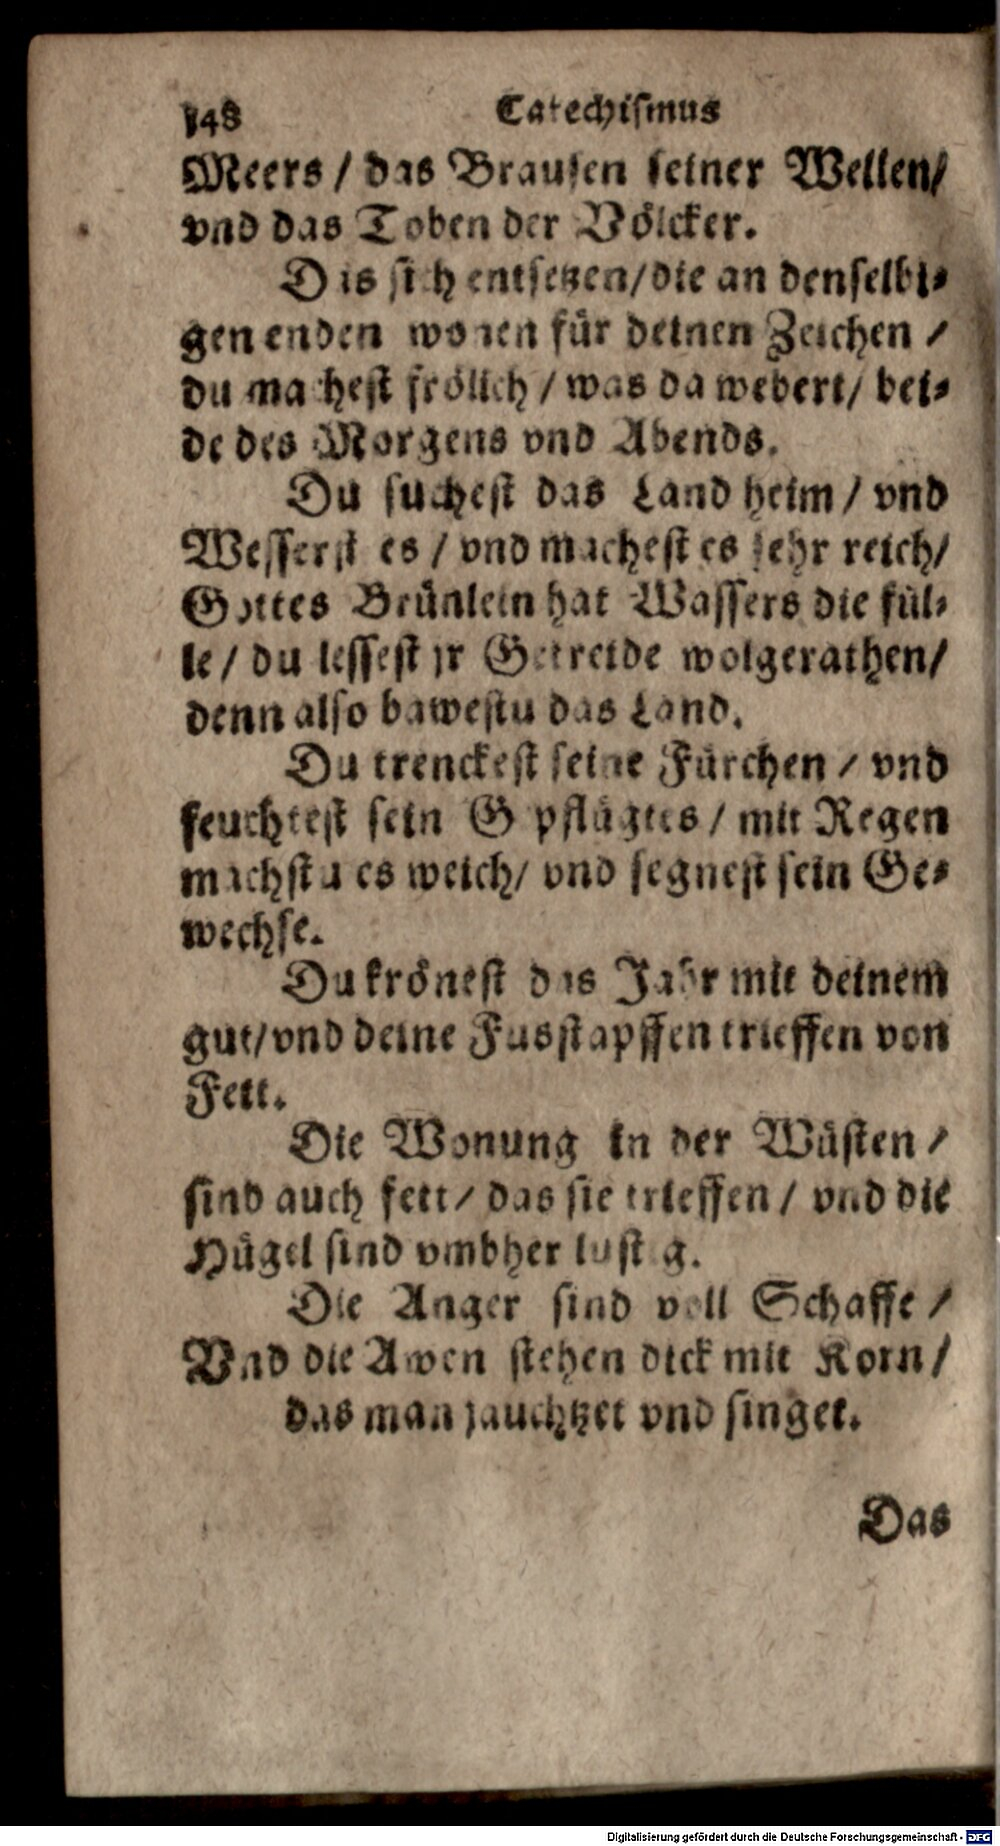 148 Catechiſmus
Meers / das Brauſen ſeiner Wellen/
vnd das Toben der Völcker.
Das ſich entſetzen/die an denſelbi⸗
gen enden wonen für deinen Zeichen /
du macheſt frölich / was da webert/ bei⸗
de des Morgens vnd Abends.
Du ſucheſt das Land heim / vnd
Weſſerſt es / vnd macheſt es ſehr reich/
Gottes Brünlein hat Waſſers die fül⸗
le / du leſſeſt jr Getreide wolgerathen/
denn alſo baweſtu das Land.
Du trenckeſt ſeine Fürchen / vnd
feuchteſt ſein Gepflügtes / mit Regen
machſtu es weich/ vnd ſegneſt ſein Ge⸗
wechſe.
Du kröneſt das Jahr mit deinem
gut/vnd deine Fusſtapffen trieffen von
Fett.
Die Wonung in der Wüſten /
ſind auch fett / das ſie trieffen / vnd die
Hügel ſind vmbher luſtig.
Die Anger ſind voll Schaffe /
Vnd die Awen ſtehen dick mit Korn /
das man jauchtzet vnd ſinget.
Das
Digitalisierung gefördert durch die Deutsche Forschungsgemeinschaft - DFG